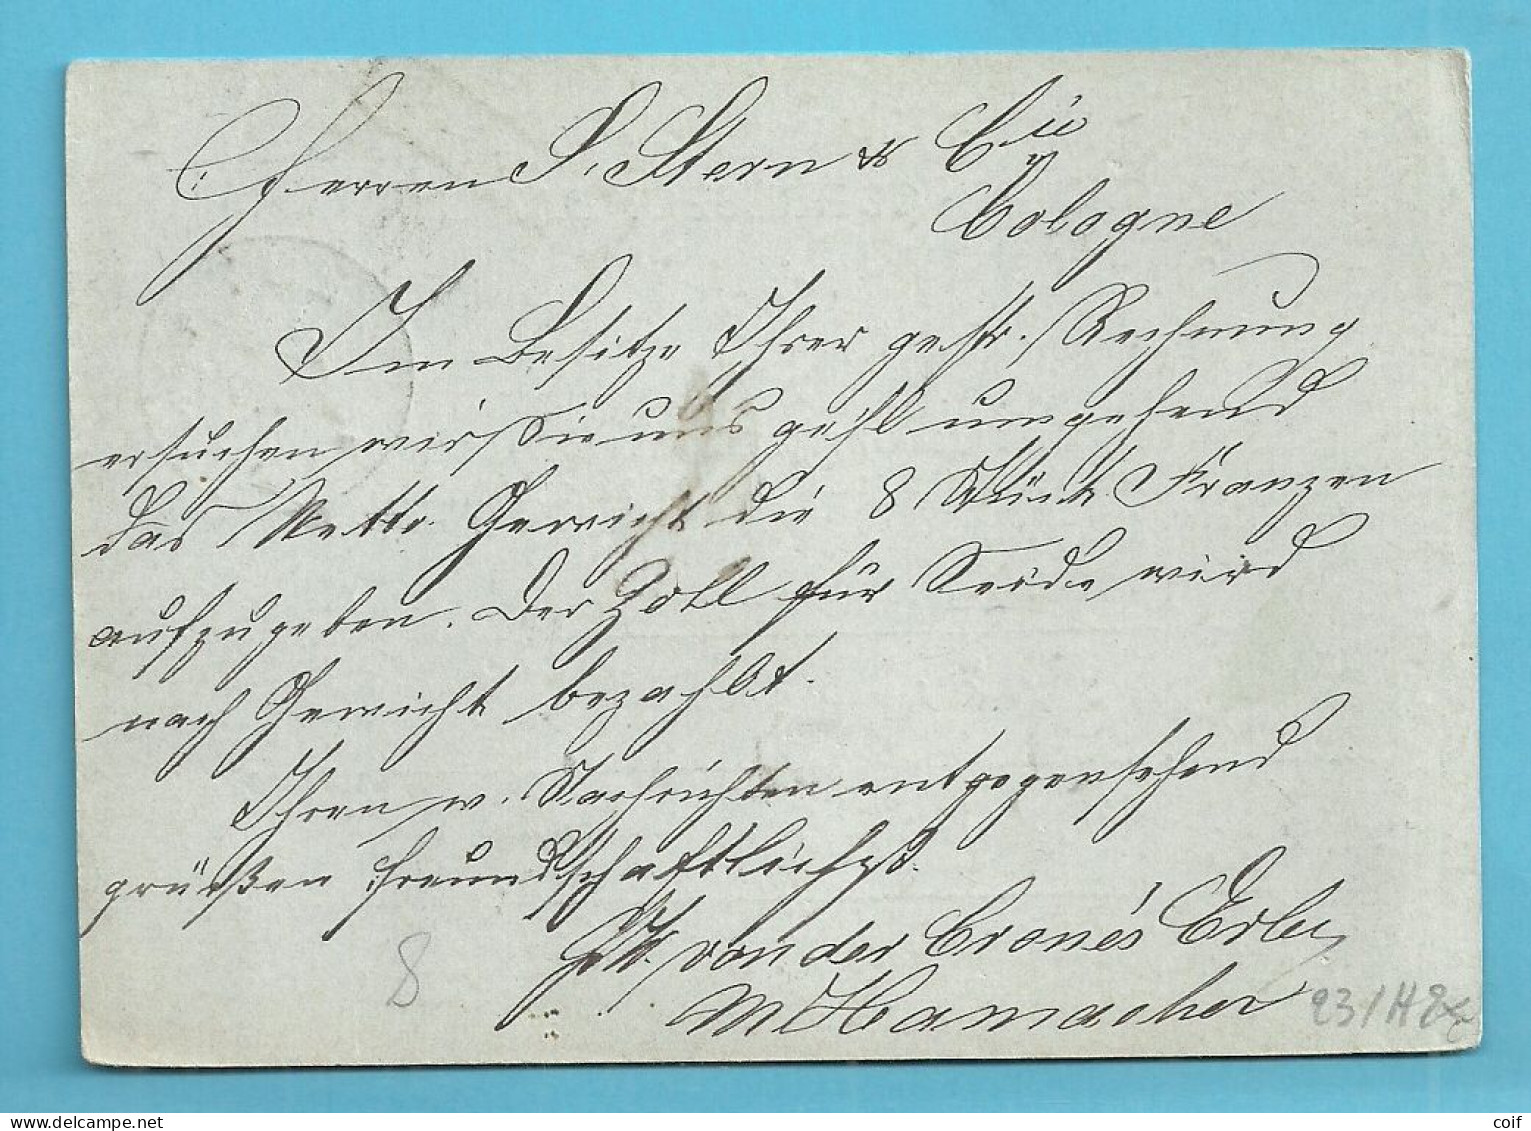 Herren S. Stern & Cie
Cologne
Im Besitze Ihrer gestr. Rechnung
ersuchen wir Sie uns gefl umgehend
das Netto Gewicht die 8 Stück Franzen
aufzugeben. Der Zoll für Seide wird
nach Gewicht bezahlt.
Ihren w. Nachrichten entgegensehend
grüßen freundschaftlichst.
von der Crone's
M Hamacher
8
www.delcampe.net
coif